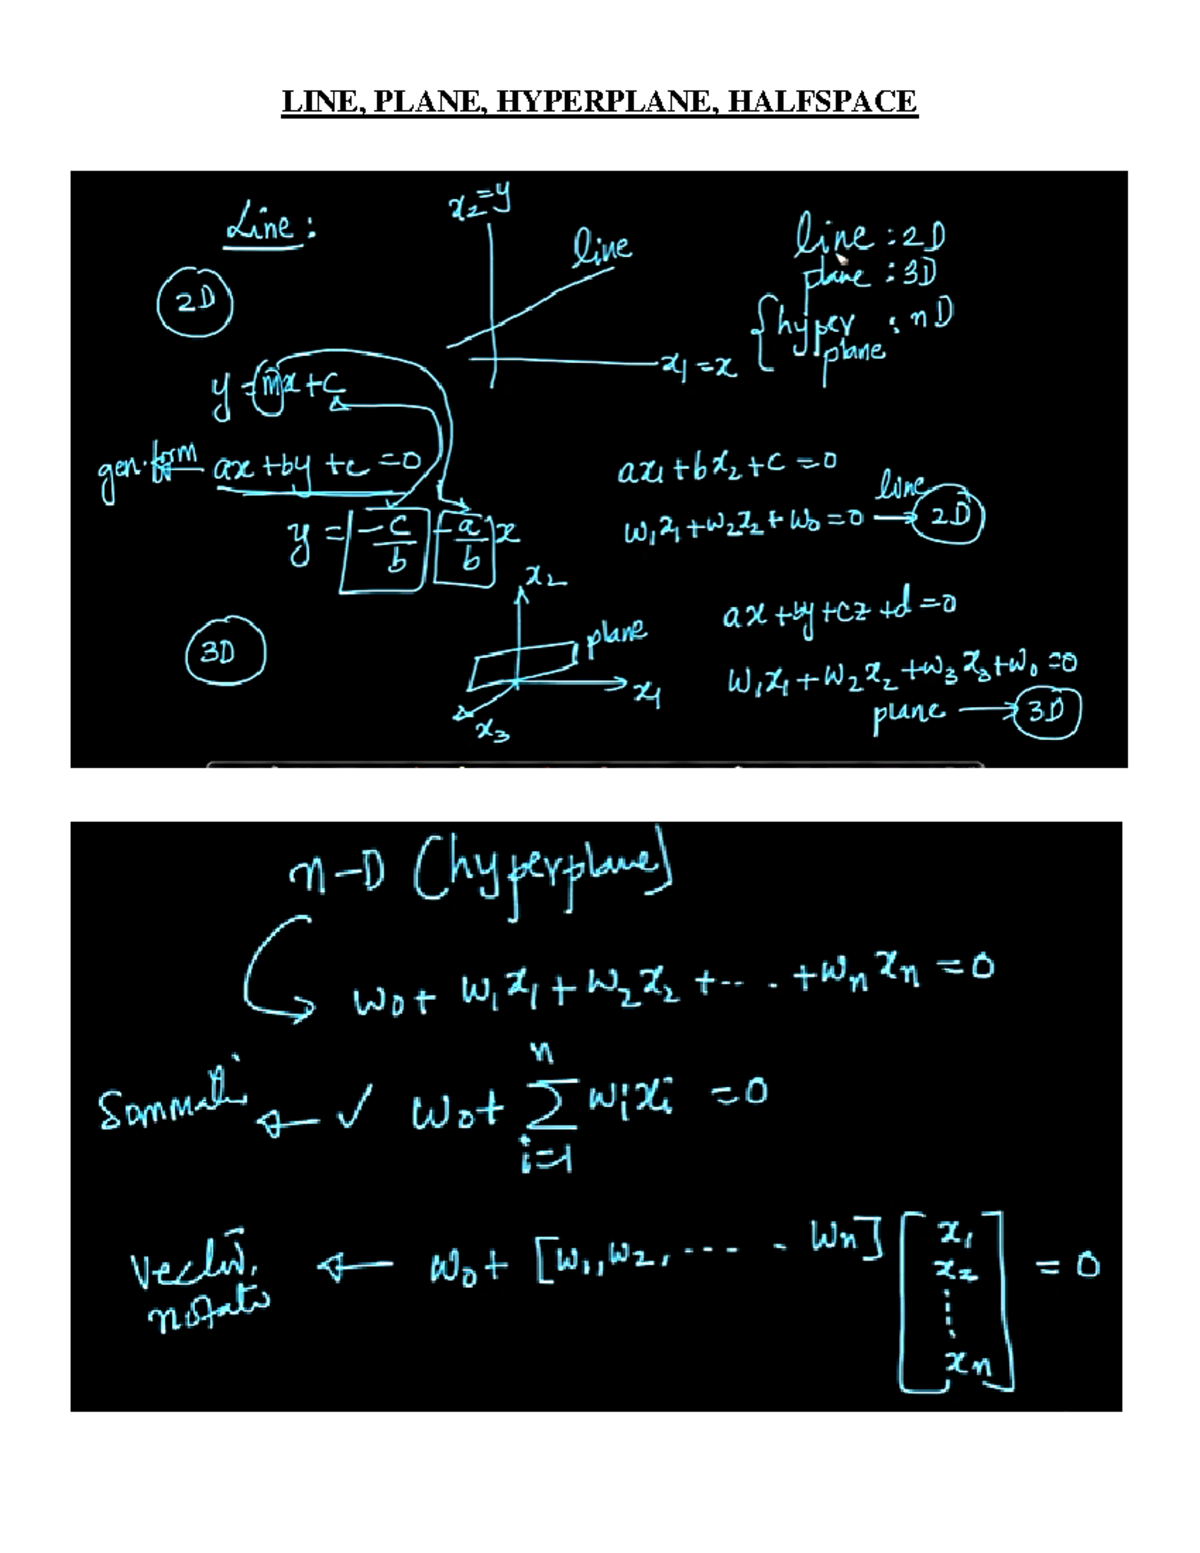 LINE, PLANE, HYPERPLANE, HALFSPACE
Line :
2D
x₂=y
line
x₁=x
line : 2D
plane : 3D
{hyper plane : nD
y = mx+c
gen. form ax+by+c=0
y = -c/b -a/b x
ax₁+bx₂+c=0
w₁x₁+w₂x₂+w₀=0 → 2D
line
3D
x₂
plane
x₁
x₃
ax+by+cz+d=0
w₁x₁+w₂x₂+w₃x₃+w₀=0
plane → 3D
n-D (hyperplane)
w₀+ w₁x₁+w₂x₂ +-- . . +wₙxₙ =0
✓ w₀+ Σ wᵢxᵢ =0
n
i=1
w₀+ [w₁,w₂, --- - wₙ] [x₁ x₂ ⋮ xₙ] = 0